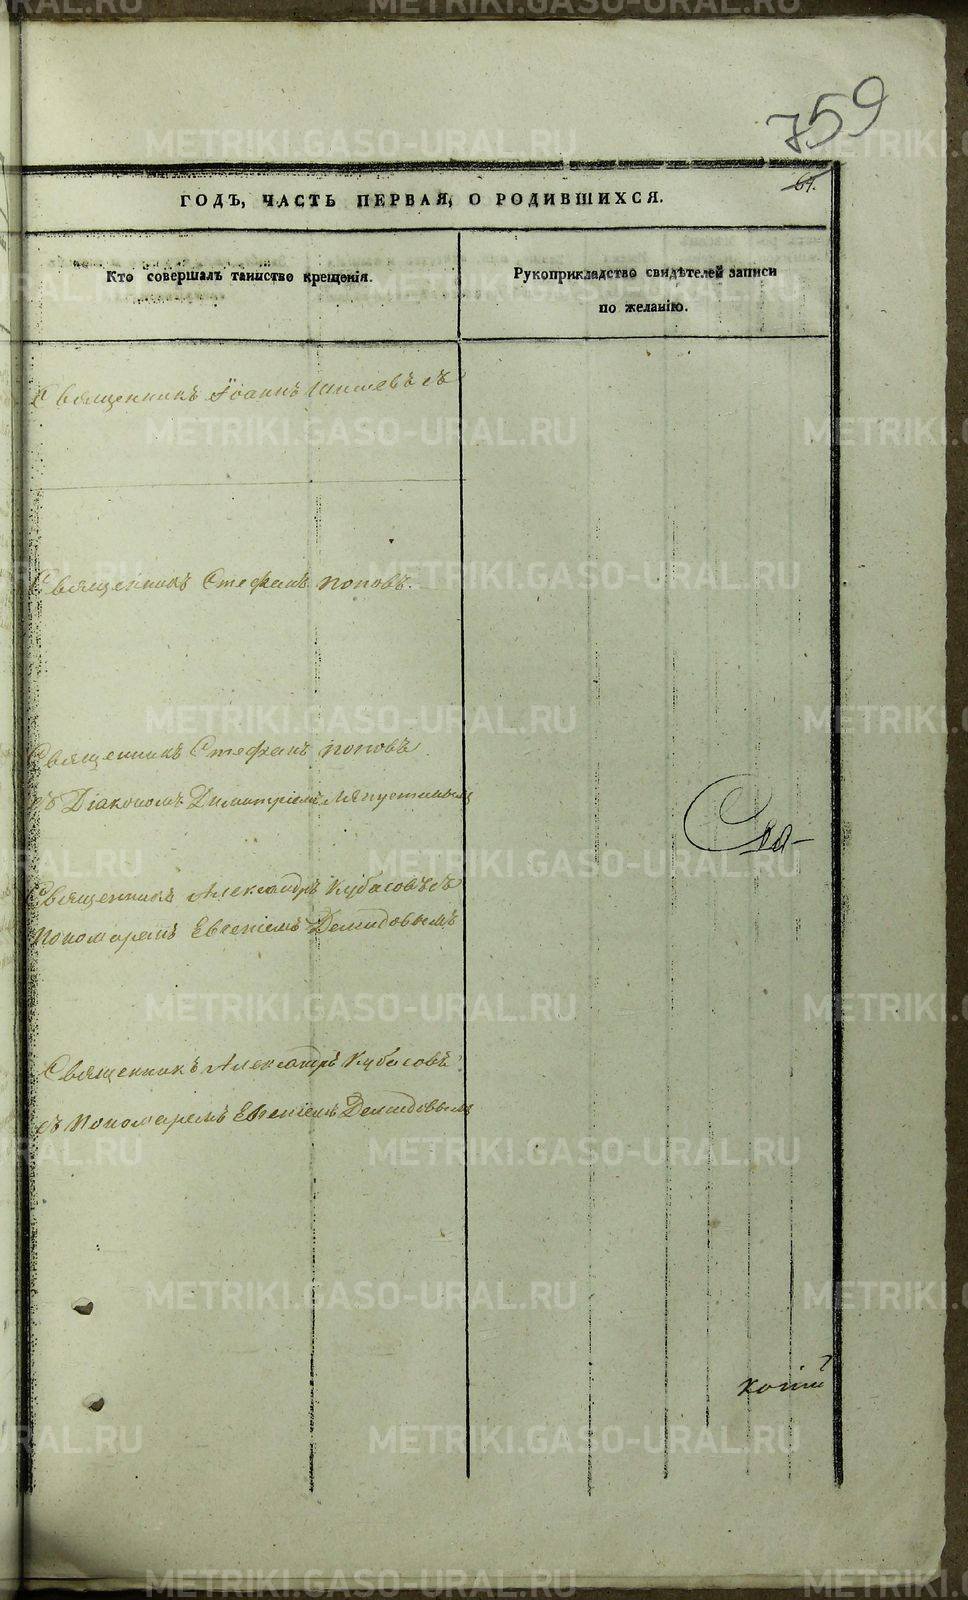 759
61.
ГОДЪ, ЧАСТЬ ПЕРВАЯ, О РОДИВШИХСЯ.
Кто совершалъ таинство крещенія.
Рукоприкладство свидѣтелей записи
по желанію.
Священникъ Іоаннъ Шишевъ съ
Священникъ Стефанъ Поповъ.
Священникъ Стефанъ Поповъ
съ Діакономъ Димитріемъ
Свя-
Священникъ Александръ Кубасовъ съ
Пономаремъ Евгеніемъ Демидовымъ
Священникъ Александръ Кубасовъ
съ Пономаремъ Евгеніемъ Демидовымъ
METRIKI.GASO-URAL.RU